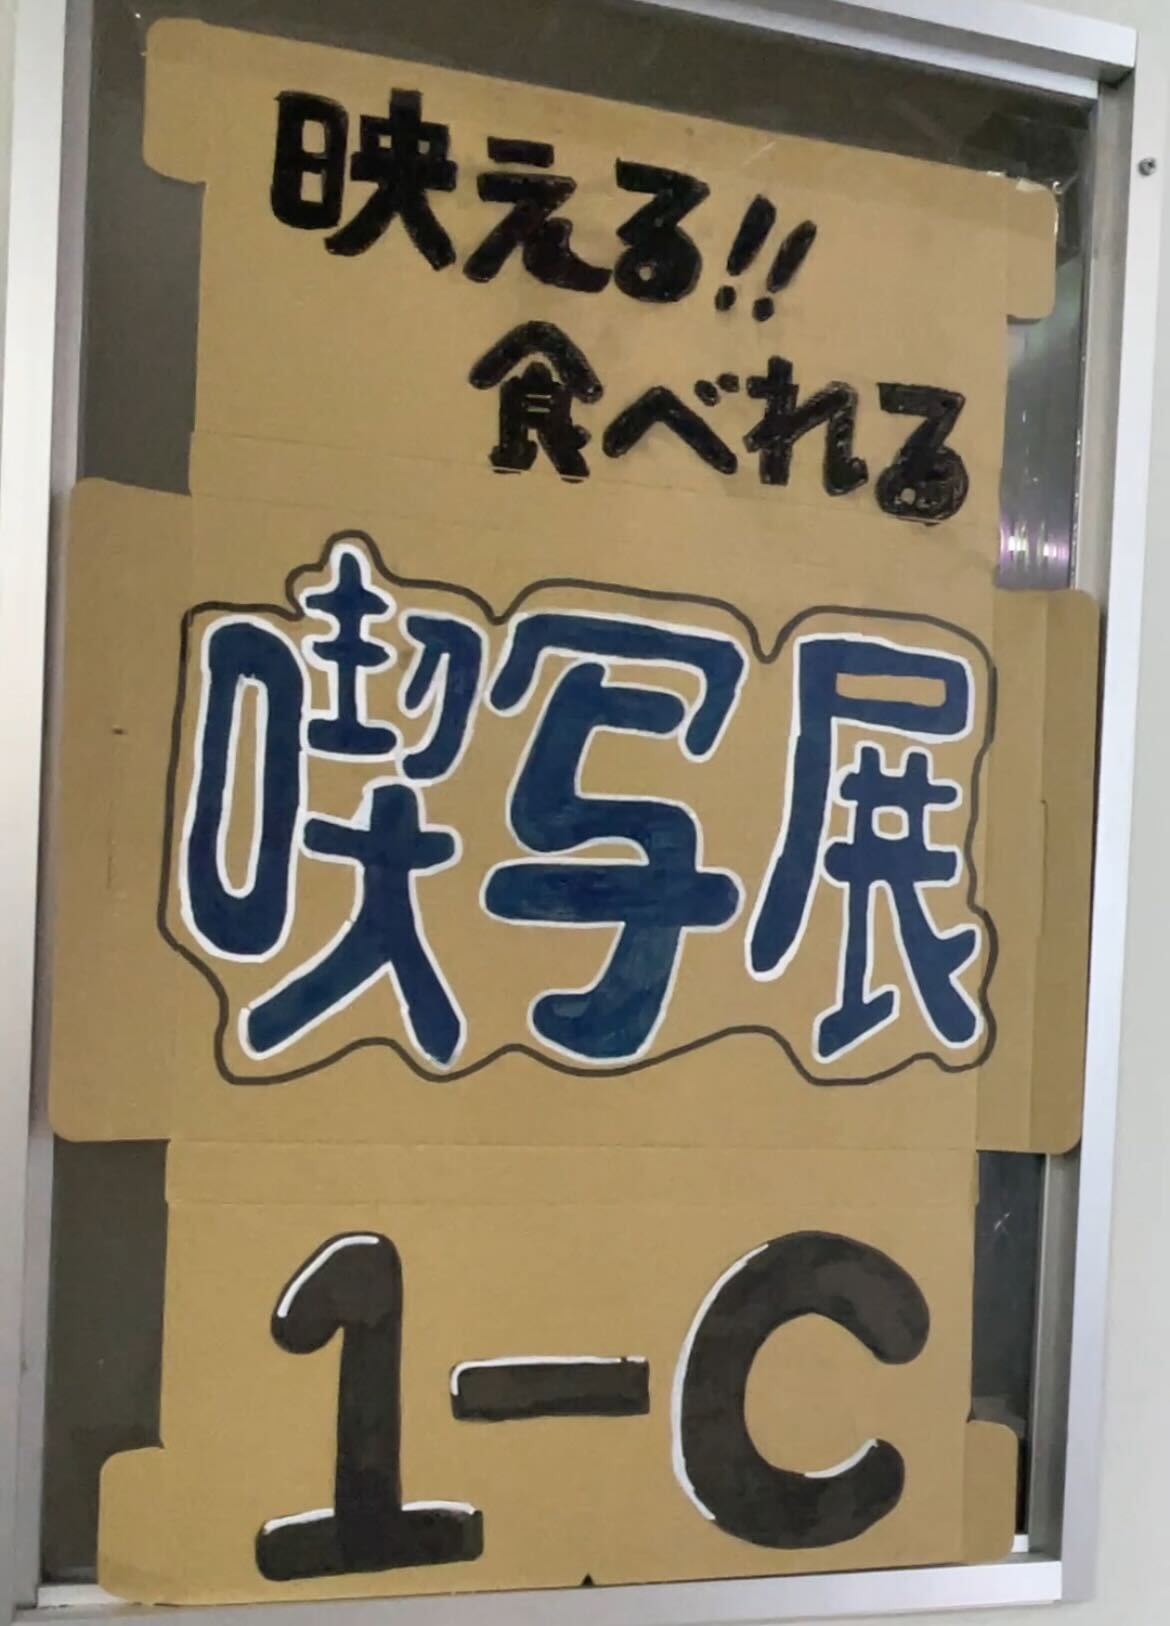 映える!!
食べれる
喫写展
1-C